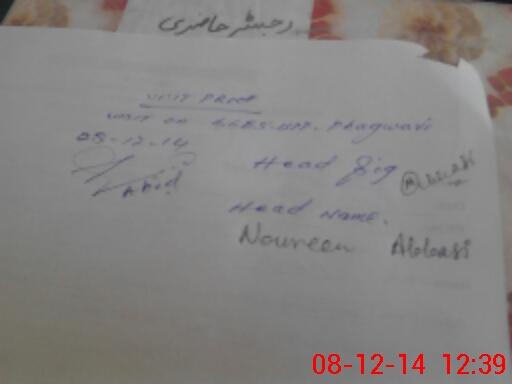 رجسٹر حاضری
VISIT PROOF
VISIT ON GGPS. Phagwari
08-12-14
Head Sig
Abid
Head Name.
Noureen Abbasi
08-12-14 12:39